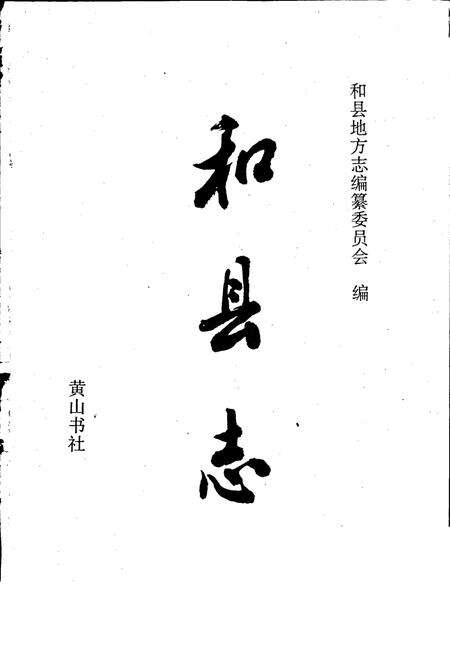 和县地方志编纂委员会 编
和县志
黄山书社